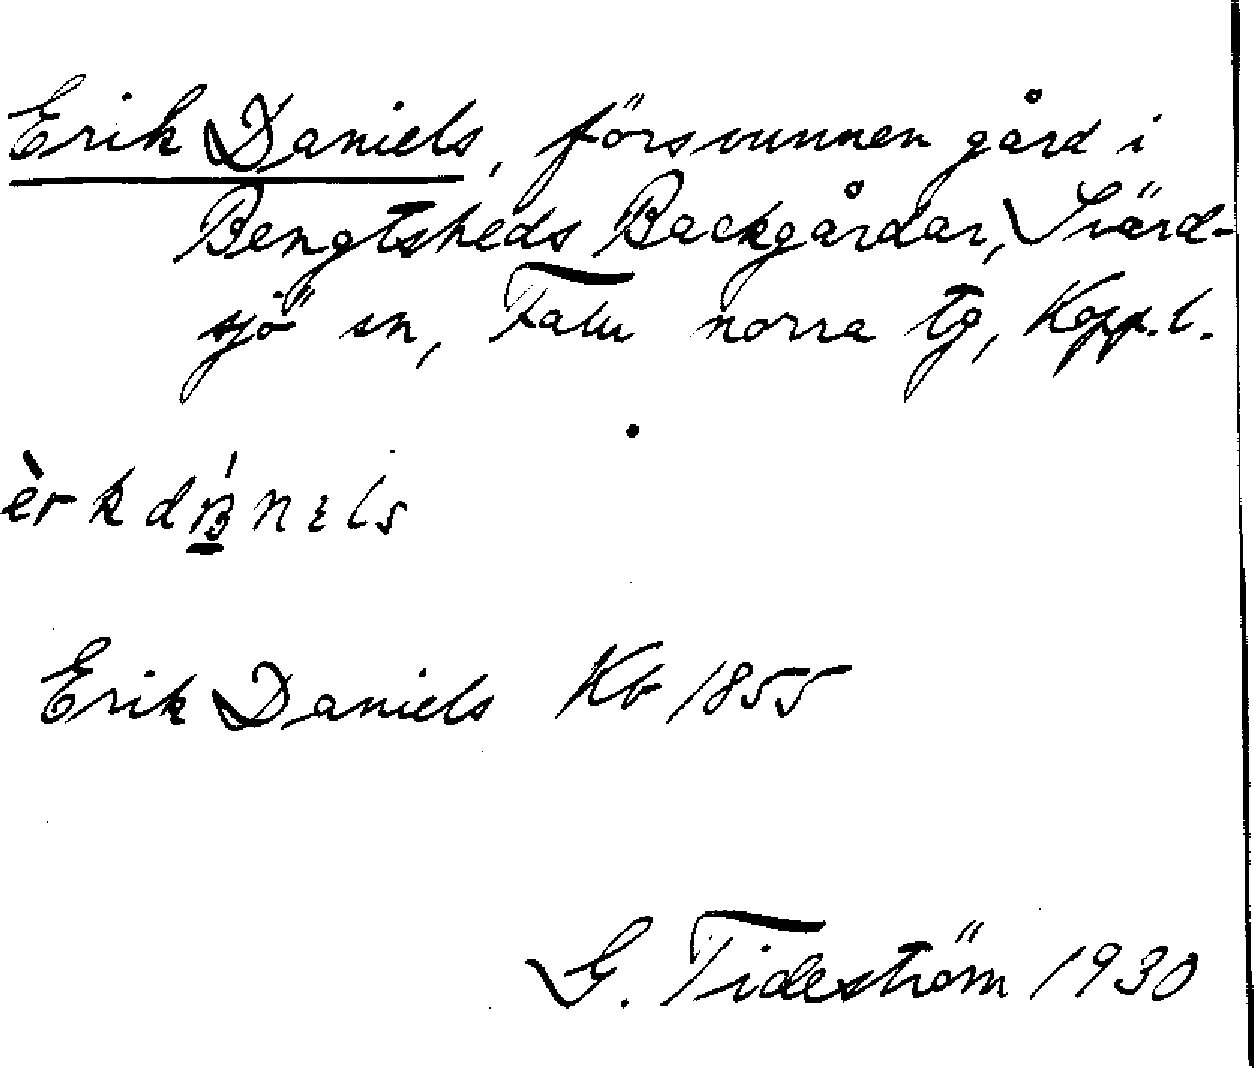 Erik Daniels, försvunnen gård i
Bengtsheds Backgårdar, Svärd-
sjö sn, Falu norra tg, Kopp. l.
Erik Daniels Kb 1855
G. Tideström 1930